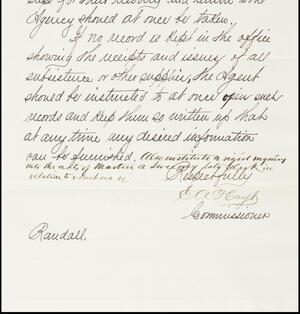 Agency should at once be taken.
If no record is kept in the office
showing the receipts and issuing of all
subsistence or other supplies, the Agent
should be instructed to at once open such
records and keep them so written up that
at any time any desired information
can be furnished. Also institute a rigid inquiry
into the acts of late Clerk in
relation to
Respectfully
E A Hayt
Commissioner
Randall.